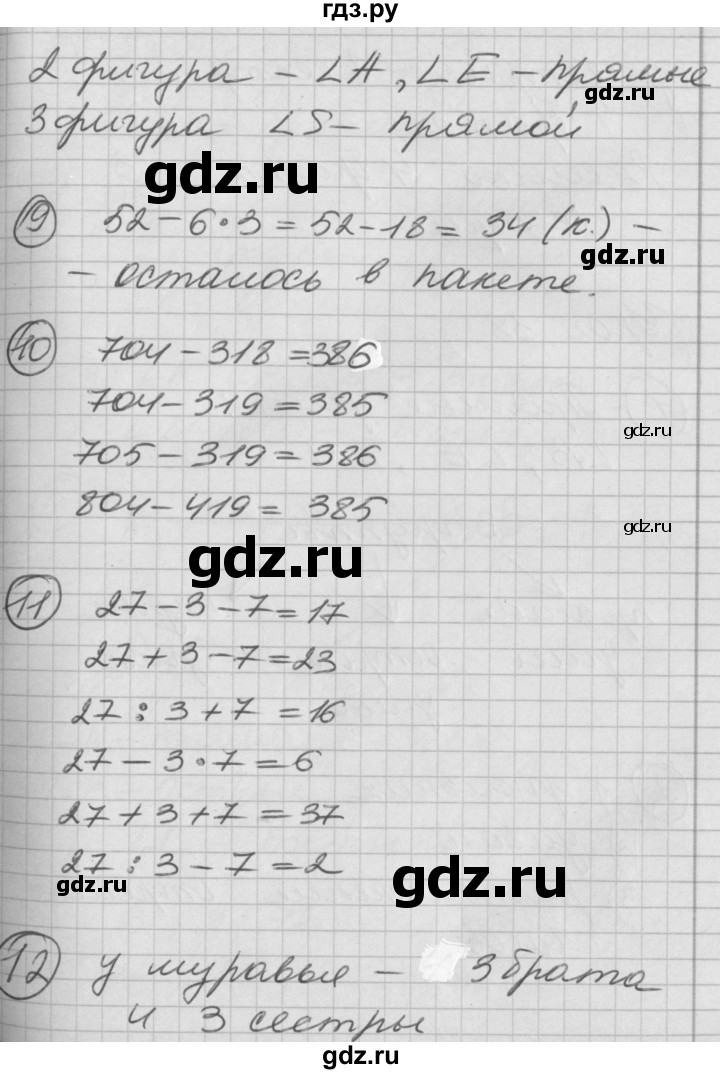 гдз.ру
2 фигура - ∠A, ∠E - прямые
gdz.ru
3 фигура ∠S - прямой
gdz.ru
9 52-6·3=52-18=34 (к.) -
gdz.ru
- осталось в пакете.
10 704-318=386
704-319=385
gdz.ru
705-319=386
804-419=385
gdz.ru
gdz.ru
11 27-3-7=17
27+3-7=23
27:3+7=16
27-3·7=6
27+3+7=37
27:3-7=2
gdz.ru
gdz.ru
12 у муравья - 3 брата
и 3 сестры
gdz.ru